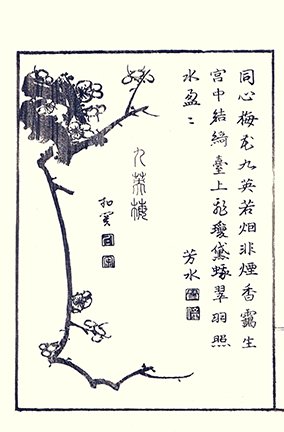 同心梅花九英若烟非煙香靄生
宮中結綺臺上飛瓊黛翠羽照
水盈〻
芳水
九英梅